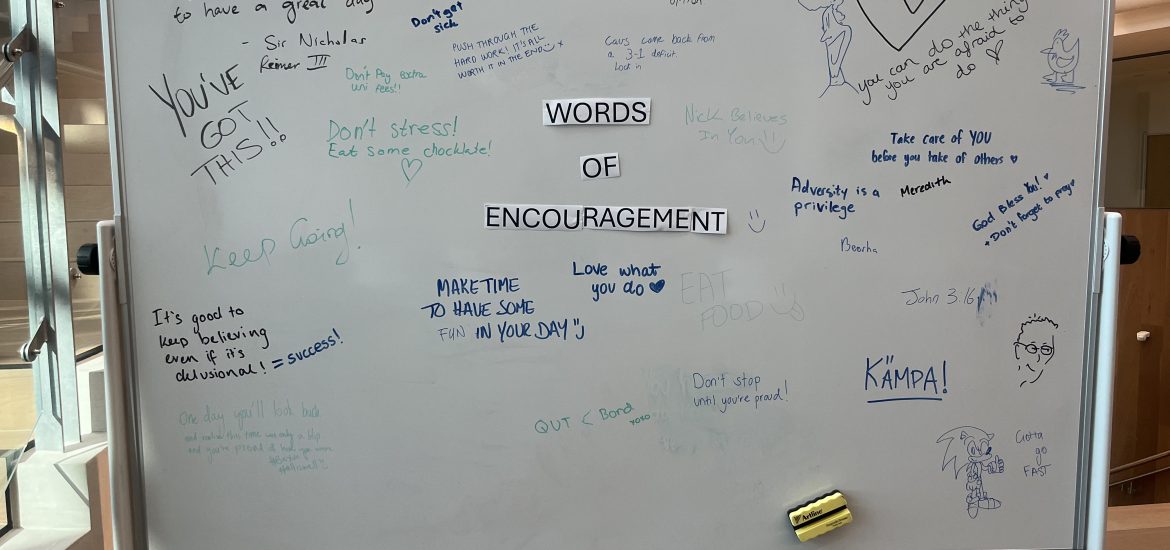 to have a great day
- Sir Nicholas
Reimer III
Don't get
sick
PUSH THROUGH THE
HARD WORK! IT'S ALL
WORTH IT IN THE END x
Cavs came back from
a 3-1 deficit.
Lock in
you can do the thing
you are afraid to
do
YOU'VE
GOT
THIS!!
Don't Pay extra
uni fees!!
Don't stress!
Eat some chocklate!
WORDS
OF
ENCOURAGEMENT
Nick Believes
In You
Take care of YOU
before you take of others
Adversity is a
privilege
Meredith
God Bless You!
+ Don't forget to pray
Keep Going!
MAKE TIME
TO HAVE SOME
FUN IN YOUR DAY
Love what
you do
EAT
FOOD
John 3:16
It's good to
keep believing
even if it's
delusional! = success!
KÄMPA!
Don't stop
until you're proud!
QUT < Bond
xoxo
One day you'll look back
and realise this time was only a blip
and you're proud of how you
Gotta
go
FAST
Artline